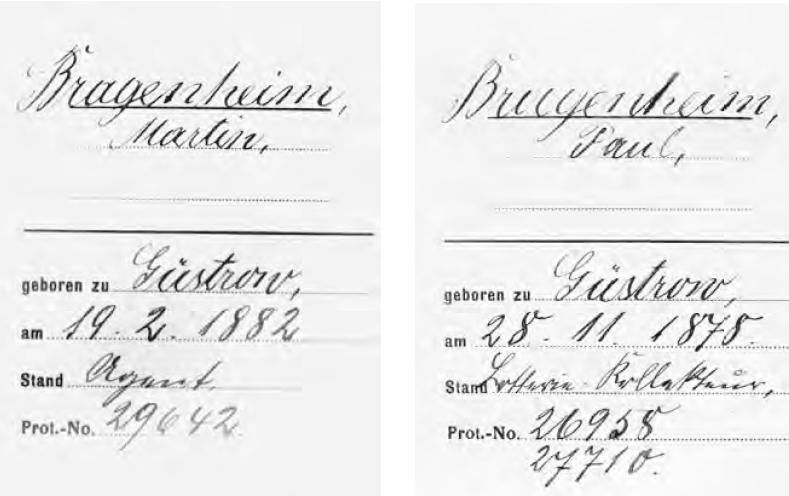 Bragenheim,
Martin,
geboren zu Güstrow,
am 19. 2. 1882
Stand Agent,
Prot.-No. 29642.
Bragenheim,
Paul,
geboren zu Güstrow,
am 28. 11. 1878.
Stand Lotterie-Kollekteur,
Prot.-No. 26958
27710.